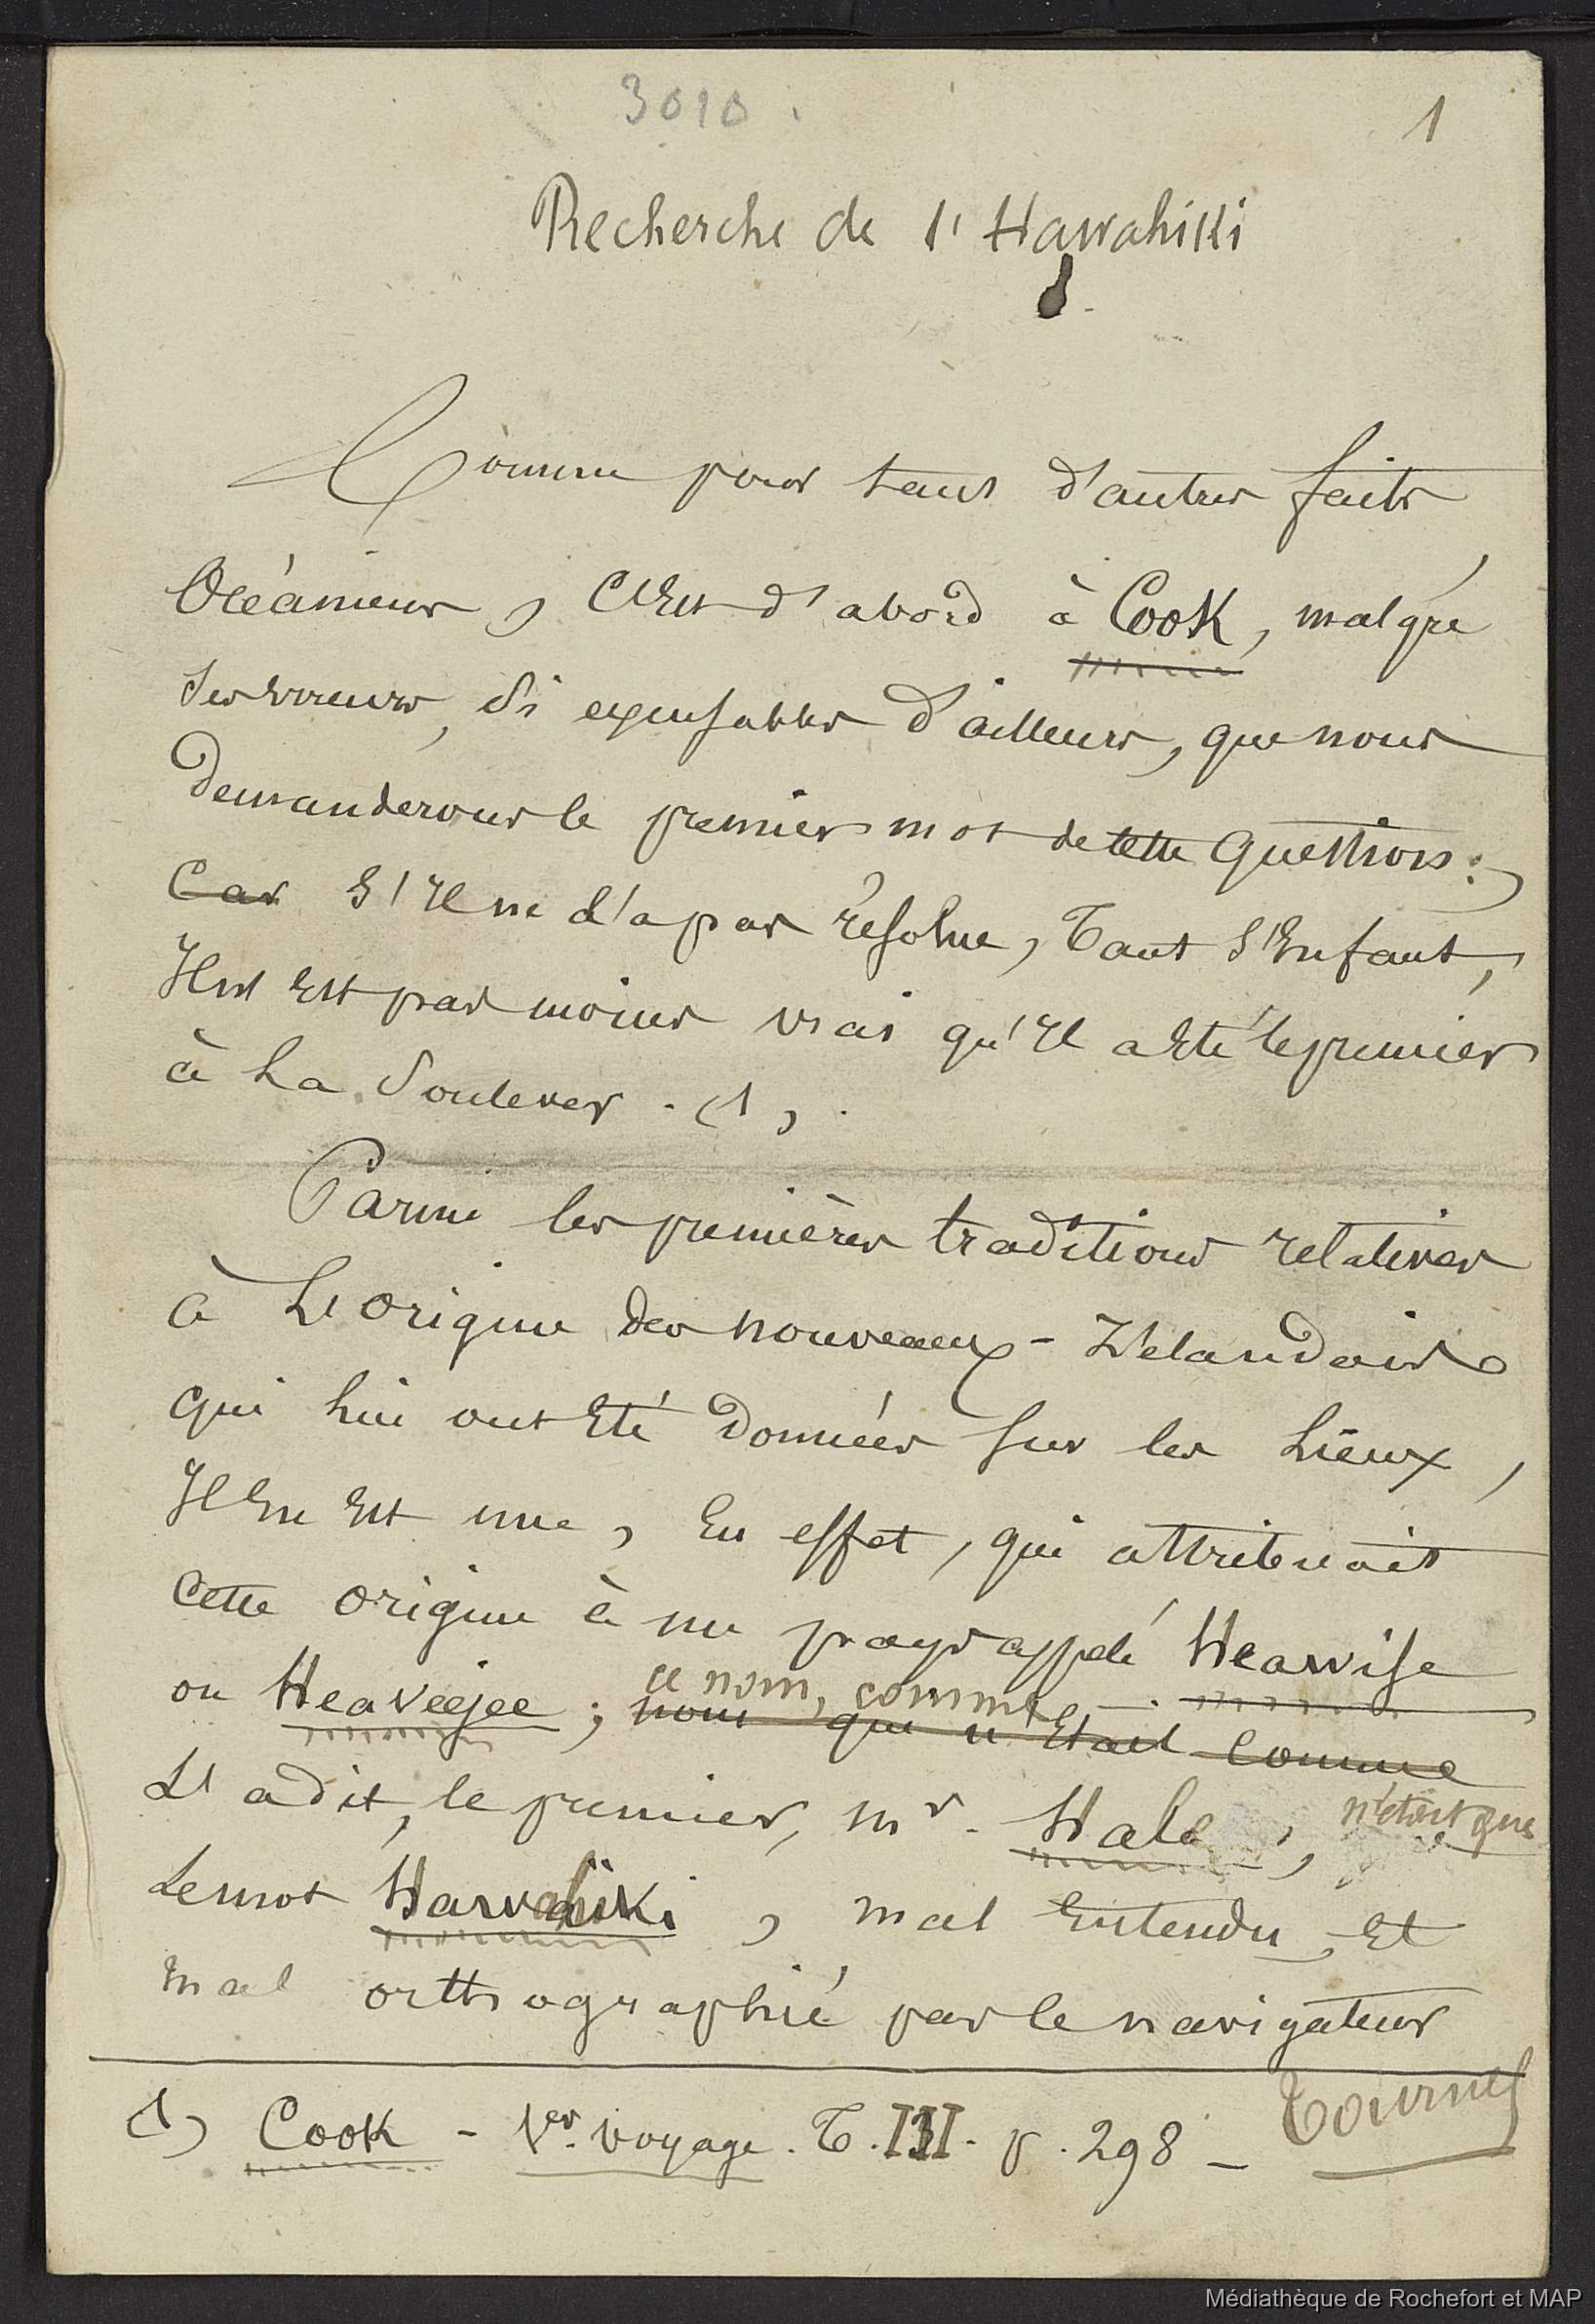 3010.
1
Recherche de l'Hawahiki
Comme pour tant d'autres faits
Océaniens, C'Est d'abord à Cook, malgré
Ses erreurs, Si excusables d'ailleurs, que nous
demanderons le premier mot de cette question;
Car S'Il ne l'a pas résolue, Tant S'Enfaut,
Iln'Est pas moins vrai qu'Il aEté le premier
à La Soulever. (1).
Parmi les premières traditions relatives
à L'origine des nouveaux-Zélandais
qui Lui ont Eté données sur les Lieux,
IlEn Est une, En effet, qui attribuait
Cette Origine à un pays appelé Heawise
ce nom, comme
ou Heaveejee; nom qui n'Etait Comme
L'adit, le premier, mr. Hale, n'était que
Lemot Hawahiki, mal Entendu, Et
mal orthographié par le navigateur
(1) Cook - 1er. voyage. T. III. p. 298 -
Tournez
Médiathèque de Rochefort et MAP